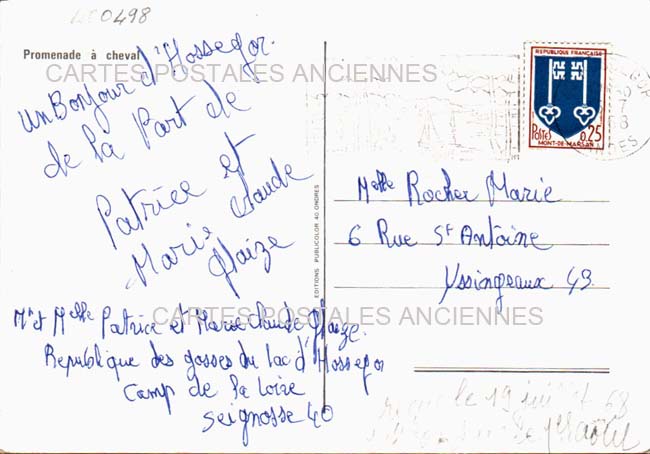 450498
Promenade à cheval
CARTES POSTALES ANCIENNES
Un Bonjour d'Hossegor.
de la Part de
Patrice et
Marie Claude
Glaize
Mr et Melle Patrice et Marie Claude Glaize.
Republique des gosses du lac d'Hossegor
Camp de la Loire
Seignosse 40
EDITIONS PUBLICOLOR 40 ONDRES
REPUBLIQUE FRANÇAISE
POSTES 0,25
MONT-DE-MARSAN
Melle Rocher Marie
6 Rue St Antoine
Yssingeaux 43
CARTES POSTALES ANCIENNES
le 19 juillet 68